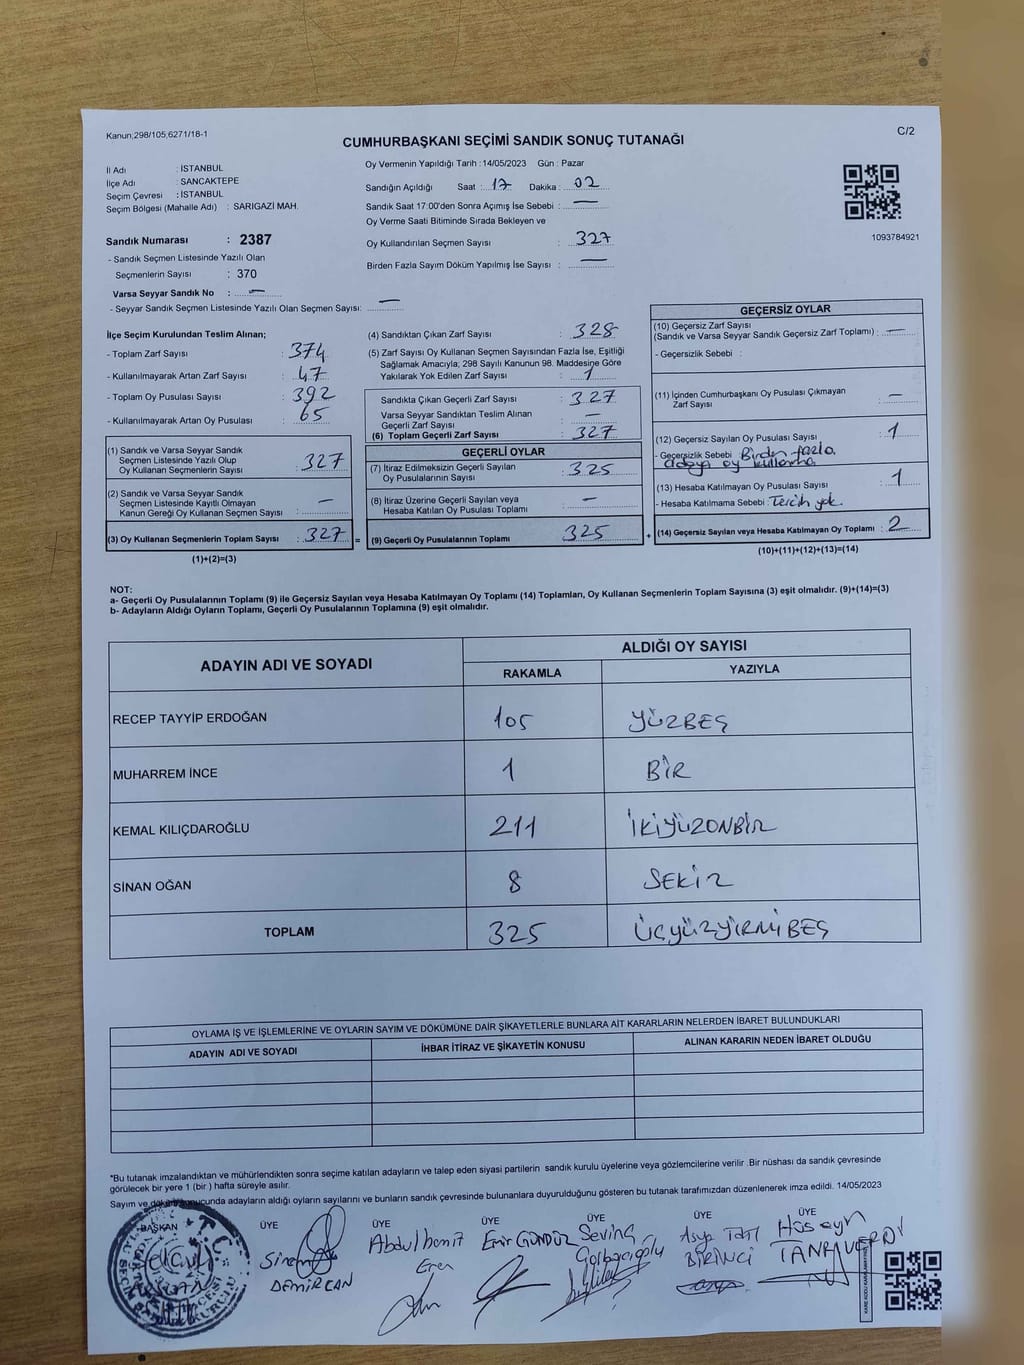 Kanun;298/105,6271/18-1
C/2
CUMHURBAŞKANI SEÇİMİ SANDIK SONUÇ TUTANAĞI
İl Adı : İSTANBUL
İlçe Adı : SANCAKTEPE
Seçim Çevresi : İSTANBUL
Seçim Bölgesi (Mahalle Adı) : SARIGAZİ MAH.
Sandık Numarası : 2387
- Sandık Seçmen Listesinde Yazılı Olan
Seçmenlerin Sayısı : 370
Varsa Seyyar Sandık No : —
- Seyyar Sandık Seçmen Listesinde Yazılı Olan Seçmen Sayısı: —
Oy Vermenin Yapıldığı Tarih : 14/05/2023 Gün : Pazar
Sandığın Açıldığı Saat : 17 Dakika : 02
Sandık Saat 17:00'den Sonra Açımış İse Sebebi : —
Oy Verme Saati Bitiminde Sırada Bekleyen ve
Oy Kullandırılan Seçmen Sayısı : 327
Birden Fazla Sayım Döküm Yapılmış İse Sayısı : —
1093784921
İlçe Seçim Kurulundan Teslim Alınan;
- Toplam Zarf Sayısı : 374
- Kullanılmayarak Artan Zarf Sayısı : 47
- Toplam Oy Pusulası Sayısı : 392
- Kullanılmayarak Artan Oy Pusulası : 65
(1) Sandık ve Varsa Seyyar Sandık
Seçmen Listesinde Yazılı Olup
Oy Kullanan Seçmenlerin Sayısı : 327
(2) Sandık ve Varsa Seyyar Sandık
Seçmen Listesinde Kayıtlı Olmayan
Kanun Gereği Oy Kullanan Seçmen Sayısı : —
(3) Oy Kullanan Seçmenlerin Toplam Sayısı : 327 =
(1)+(2)=(3)
(4) Sandıktan Çıkan Zarf Sayısı : 328
(5) Zarf Sayısı Oy Kullanan Seçmen Sayısından Fazla İse, Eşitliği
Sağlamak Amacıyla; 298 Sayılı Kanunun 98. Maddesine Göre
Yakılarak Yok Edilen Zarf Sayısı : 1
Sandıkta Çıkan Geçerli Zarf Sayısı : 327
Varsa Seyyar Sandıktan Teslim Alınan
Geçerli Zarf Sayısı : —
(6) Toplam Geçerli Zarf Sayısı : 327
GEÇERLİ OYLAR
(7) İtiraz Edilmeksizin Geçerli Sayılan
Oy Pusulalarının Sayısı : 325
(8) İtiraz Üzerine Geçerli Sayılan veya
Hesaba Katılan Oy Pusulası Toplamı : —
(9) Geçerli Oy Pusulalarının Toplamı : 325 +
GEÇERSİZ OYLAR
(10) Geçersiz Zarf Sayısı
(Sandık ve Varsa Seyyar Sandık Geçersiz Zarf Toplamı) : —
- Geçersizlik Sebebi :
(11) İçinden Cumhurbaşkanı Oy Pusulası Çıkmayan
Zarf Sayısı : —
(12) Geçersiz Sayılan Oy Pusulası Sayısı : 1
- Geçersizlik Sebebi : Birden fazla
adaya oy kullanma.
(13) Hesaba Katılmayan Oy Pusulası Sayısı : 1
- Hesaba Katılmama Sebebi : Tercih yok.
(14) Geçersiz Sayılan veya Hesaba Katılmayan Oy Toplamı : 2
(10)+(11)+(12)+(13)=(14)
NOT:
a- Geçerli Oy Pusulalarının Toplamı (9) ile Geçersiz Sayılan veya Hesaba Katılmayan Oy Toplamı (14) Toplamları, Oy Kullanan Seçmenlerin Toplam Sayısına (3) eşit olmalıdır. (9)+(14)=(3)
b- Adayların Aldığı Oyların Toplamı, Geçerli Oy Pusulalarının Toplamına (9) eşit olmalıdır.
ADAYIN ADI VE SOYADI
ALDIĞI OY SAYISI
RAKAMLA YAZIYLA
RECEP TAYYİP ERDOĞAN 105 YÜZBEŞ
MUHARREM İNCE 1 BİR
KEMAL KILIÇDAROĞLU 211 İKİYÜZONBİR
SİNAN OĞAN 8 SEKİZ
TOPLAM 325 ÜÇYÜZYİRMİBEŞ
OYLAMA İŞ VE İŞLEMLERİNE VE OYLARIN SAYIM VE DÖKÜMÜNE DAİR ŞİKAYETLERLE BUNLARA AİT KARARLARIN NELERDEN İBARET BULUNDUKLARI
ADAYIN ADI VE SOYADI İHBAR İTİRAZ VE ŞİKAYETİN KONUSU ALINAN KARARIN NEDEN İBARET OLDUĞU
*Bu tutanak imzalandıktan ve mühürlendikten sonra seçime katılan adayların ve talep eden siyasi partilerin sandık kurulu üyelerine veya gözlemcilerine verilir .Bir nüshası da sandık çevresinde
görülecek bir yere 1 (bir ) hafta süreyle asılır.
Sayım ve döküm sonucunda adayların aldığı oyların sayılarını ve bunların sandık çevresinde bulunanlara duyurulduğunu gösteren bu tutanak tarafımızdan düzenlenerek imza edildi. 14/05/2023
BAŞKAN ÜYE ÜYE ÜYE ÜYE ÜYE ÜYE
T.C.
Sinem
DEMİRCAN
Abdulhamit
Eren
Emir GÜNDÜZ
Sevinç
Asya
BİRİNCİ
Hüseyn
TANRIVERDİ